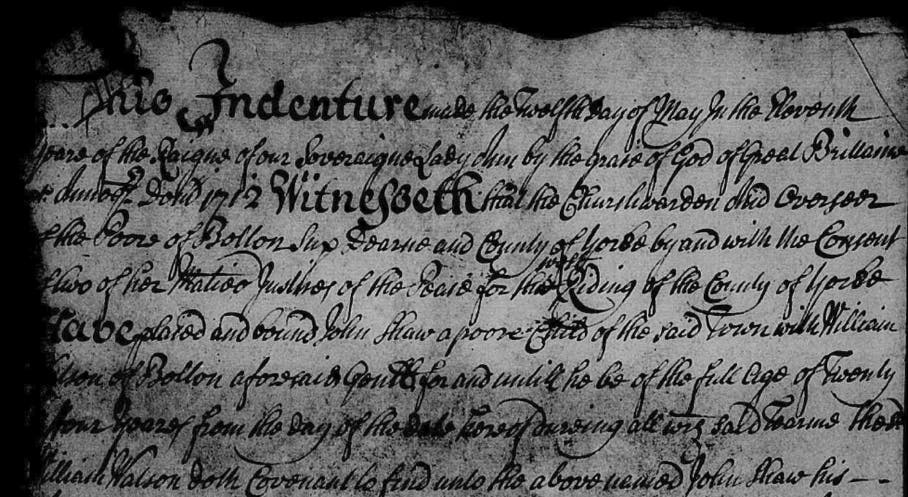 This Indenture made the Twelfth day of May In the Eleventh
yeare of the Raigne of our Soveraigne Lady Ann by the grace of God of Great Brittaine
Annoq Dom 1712 Witnesseth that the Churchwarden And Overseer
of the Poore of Bolton Sup Dearne and County of Yorke by and with the Consent
of two of her Maties Justices of the Peace for the West Riding of the County of Yorke
Have placed and bound John Shaw a poore Child of the said Town with William
of Bolton aforesaid Gentl for and untill he be of the full Age of Twenty
four yeares from the day of the date hereof dureing all said Tearme the
William Watson doth Covenant to find unto the above named John Shaw his - -